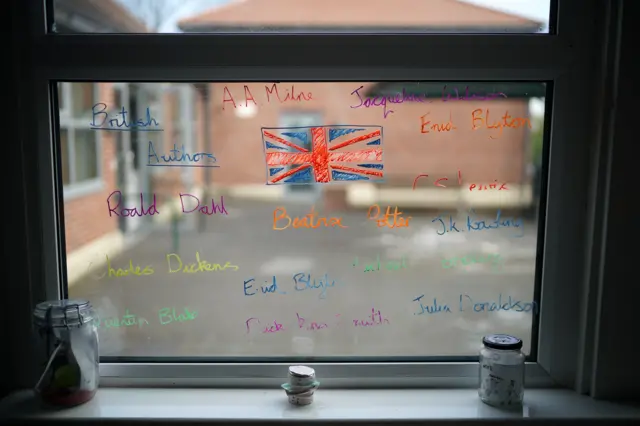 British
Authors
A.A Milne
Jacqueline
Enid Blyton
Roald Dahl
Beatrix Potter
J.K. Rowling
Charles Dickens
Enid Blyton
Julia Donaldson
Quentin Blake
Dick King Smith